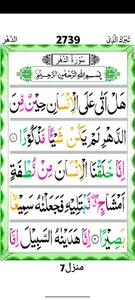 تَبٰرَكَ الَّذِیْ 2739 الدَّهْر
سُوْرَةُ الدَّهْرِ
بِسْمِ اللّٰهِ الرَّحْمٰنِ الرَّحِیْمِ
هَلْ اَتٰی عَلَی الْاِنْسَانِ حِیْنٌ مِّنَ
الدَّهْرِ لَمْ یَكُنْ شَیْـًٔا مَّذْكُوْرًا ۝۱
اِنَّا خَلَقْنَا الْاِنْسَانَ مِنْ نُّطْفَةٍ
اَمْشَاجٍ نَّبْتَلِیْهِ فَجَعَلْنٰهُ سَمِیْعًۢا
بَصِیْرًا ۝۲ اِنَّا هَدَیْنٰهُ السَّبِیْلَ اِمَّا
منزل7